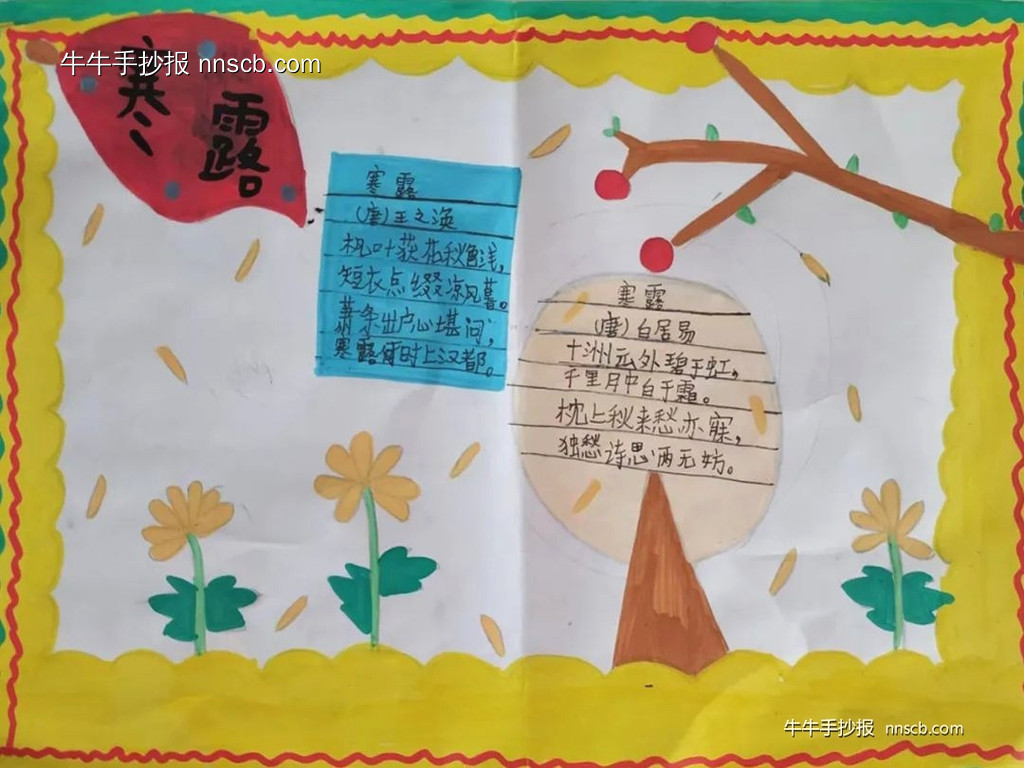 牛牛手抄报 nnscb.com
寒露
寒露
(唐)王之涣
枫叶荻花秋色浅,
短衣点缀凉风暮。
萧条出户心堪问,
寒露何时上汉都。
寒露
(唐)白居易
十洲云外碧于虹,
千里月中白于霜。
枕上秋来愁亦寐,
独愁诗思两无妨。
牛牛手抄报 nnscb.com